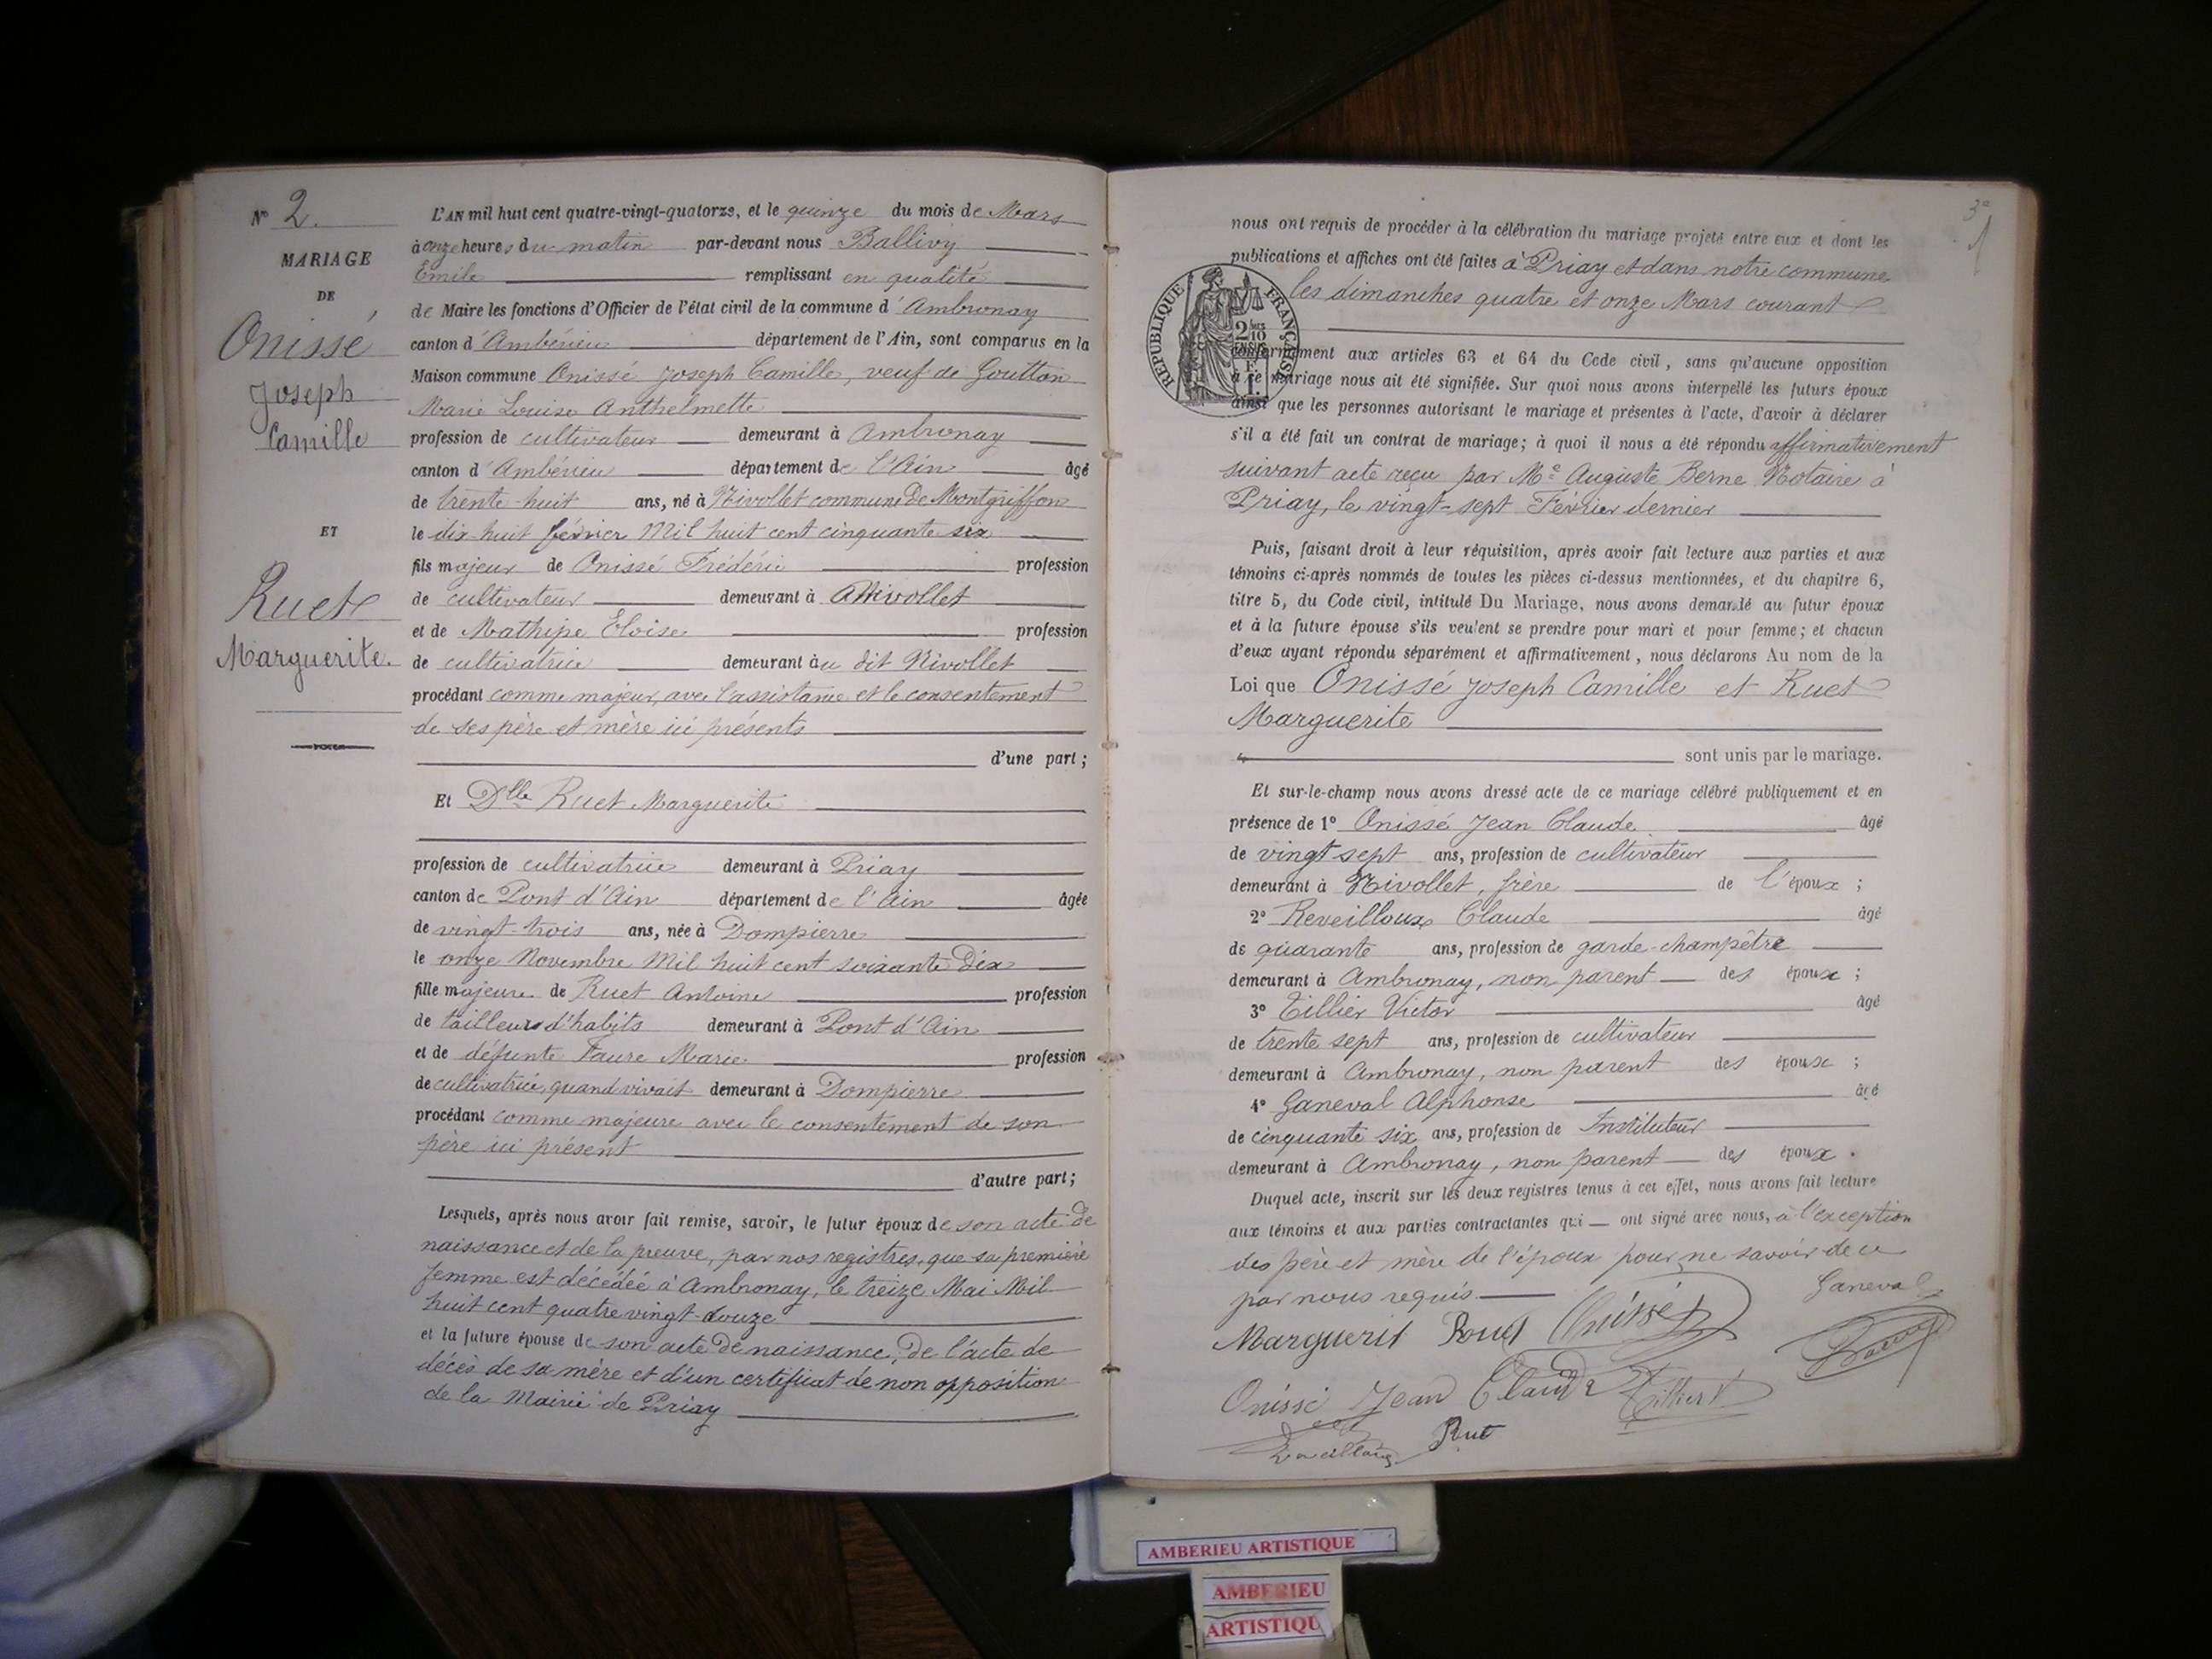 N° 2.
MARIAGE
DE
Onissé
Joseph
Camille
ET
Ruet
Marguerite.
L'AN mil huit cent quatre-vingt-quatorze, et le quinze du mois de Mars
à onze heures du matin par-devant nous Ballivy
Emile remplissant en qualité
de Maire les fonctions d'Officier de l'état civil de la commune d'Ambronay
canton d'Ambérieu département de l'Ain, sont comparus en la
Maison commune Onissé Joseph Camille, veuf de Goutton
Marie Louise Anthelmette
profession de cultivateur demeurant à Ambronay
canton d'Ambérieu département de l'Ain âgé
de trente-huit ans, né à Nivollet commune de Montgriffon
le dix-huit février Mil huit cent cinquante six
fils majeur de Onissé Frédéric profession
de cultivateur demeurant à Nivollet
et de Mathipe Eloise profession
de cultivatrice demeurant au dit Nivollet
procédant comme majeur, avec l'assistance et le consentement
de ses père et mère ici présents
d'une part ;
Et Dlle Ruet Marguerite
profession de cultivatrice demeurant à Priay
canton de Pont d'Ain département de l'Ain âgée
de vingt-trois ans, née à Dompierre
le onze Novembre Mil huit cent soixante Dix
fille majeure de Ruet Antoine profession
de tailleur d'habits demeurant à Pont d'Ain
et de défunte Faure Marie profession
de cultivatrice, quand vivait demeurant à Dompierre
procédant comme majeure avec le consentement de son
père ici présent
d'autre part ;
Lesquels, après nous avoir fait remise, savoir, le futur époux de son acte de
naissance et de la preuve, par nos registres, que sa première
femme est décédée à Ambronay, le treize Mai Mil
huit cent quatre vingt-douze
et la future épouse de son acte de naissance, de l'acte de
décès de sa mère et d'un certificat de non opposition
de la Mairie de Priay
3e
nous ont requis de procéder à la célébration du mariage projeté entre eux et dont les
publications et affiches ont été faites à Priay et dans notre commune
les dimanches quatre et onze Mars courant
RÉPUBLIQUE FRANÇAISE
2/10 EN SUS
1 F.
conformément aux articles 63 et 64 du Code civil, sans qu'aucune opposition
à ce mariage nous ait été signifiée. Sur quoi nous avons interpellé les futurs époux
ainsi que les personnes autorisant le mariage et présentes à l'acte, d'avoir à déclarer
s'il a été fait un contrat de mariage ; à quoi il nous a été répondu affirmativement
suivant acte reçu par Me Auguste Berne Notaire à
Priay, le vingt-sept Février dernier
Puis, faisant droit à leur réquisition, après avoir fait lecture aux parties et aux
témoins ci-après nommés de toutes les pièces ci-dessus mentionnées, et du chapitre 6,
titre 5, du Code civil, intitulé Du Mariage, nous avons demandé au futur époux
et à la future épouse s'ils veulent se prendre pour mari et pour femme ; et chacun
d'eux ayant répondu séparément et affirmativement, nous déclarons Au nom de la
Loi que Onissé Joseph Camille et Ruet
Marguerite
sont unis par le mariage.
Et sur-le-champ nous avons dressé acte de ce mariage célébré publiquement et en
présence de 1° Onissé Jean Claude âgé
de vingt sept ans, profession de cultivateur
demeurant à Nivollet, frère de l'époux ;
2° Reveilloux Claude âgé
de quarante ans, profession de garde-champêtre
demeurant à Ambronay, non parent des époux ;
3° Tillier Victor âgé
de trente sept ans, profession de cultivateur
demeurant à Ambronay, non parent des époux ;
4° Ganeval Alphonse âgé
de cinquante six ans, profession de Instituteur
demeurant à Ambronay, non parent des époux.
Duquel acte, inscrit sur les deux registres tenus à cet effet, nous avons fait lecture
aux témoins et aux parties contractantes qui ont signé avec nous, à l'exception
des père et mère de l'époux pour ne savoir de ce
par nous requis.
Ganeval
Marguerit Ruet Onissé
Onissé Jean Claude Tillier V
Ruet
AMBERIEU ARTISTIQUE
AMBERIEU
ARTISTIQU